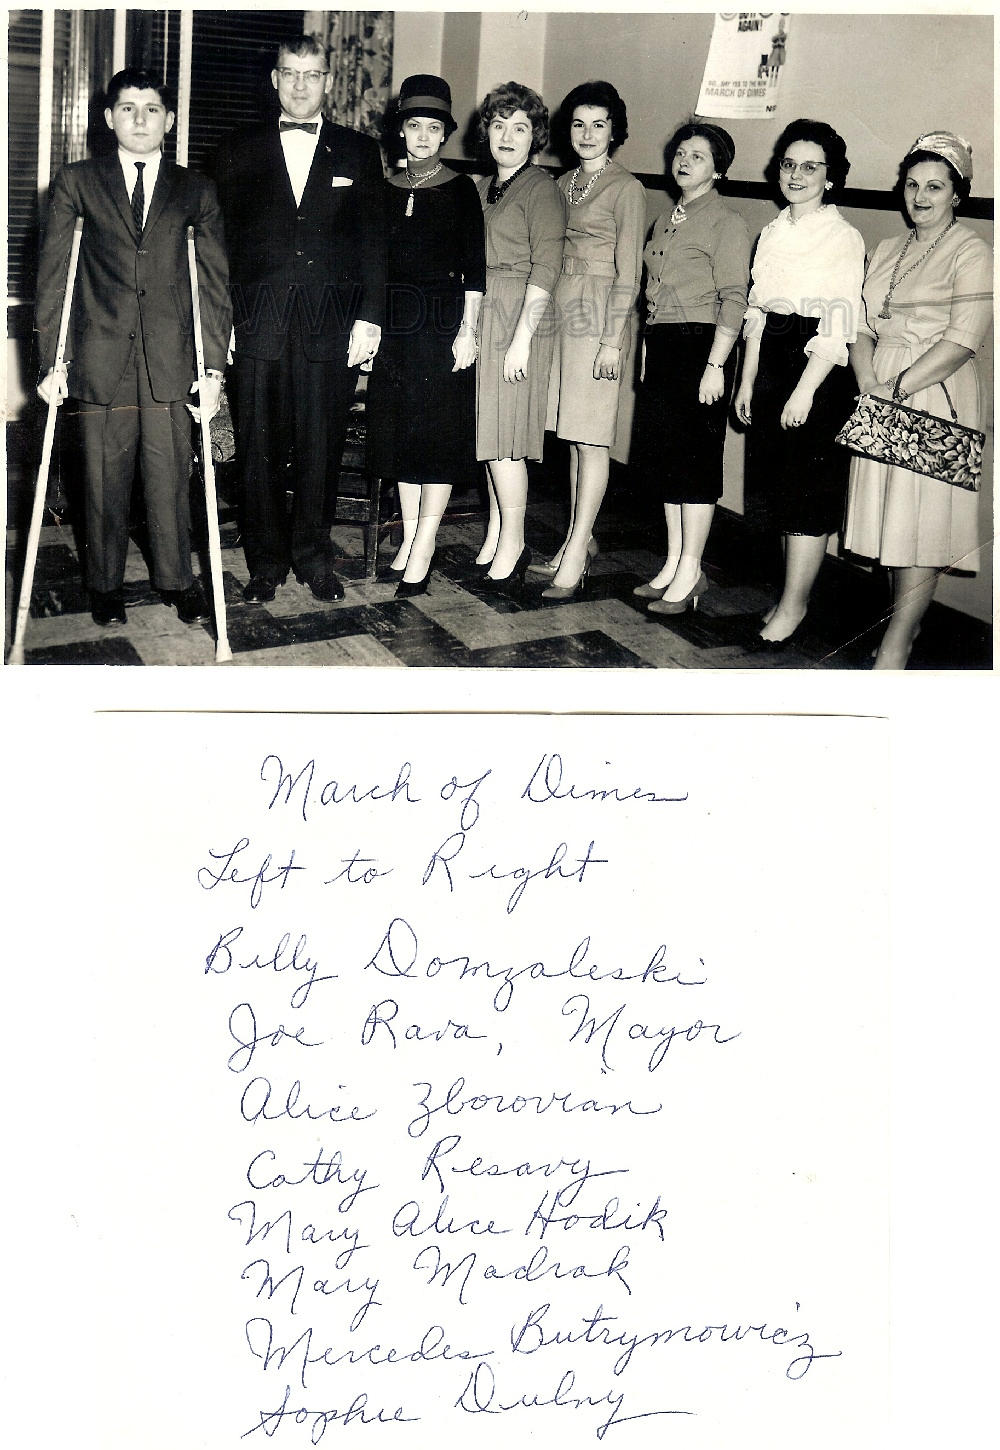 AGAIN!
SAY YES TO THE NEW
MARCH OF DIMES
WWW.DuryeaPA.com
March of Dimes
Left to Right
Billy Domzaleski
Joe Rava, Mayor
Alice Zborovian
Cathy Resavy
Mary Alice Hodik
Mary Madrak
Mercedes Butrymowicz
Sophie Dulny